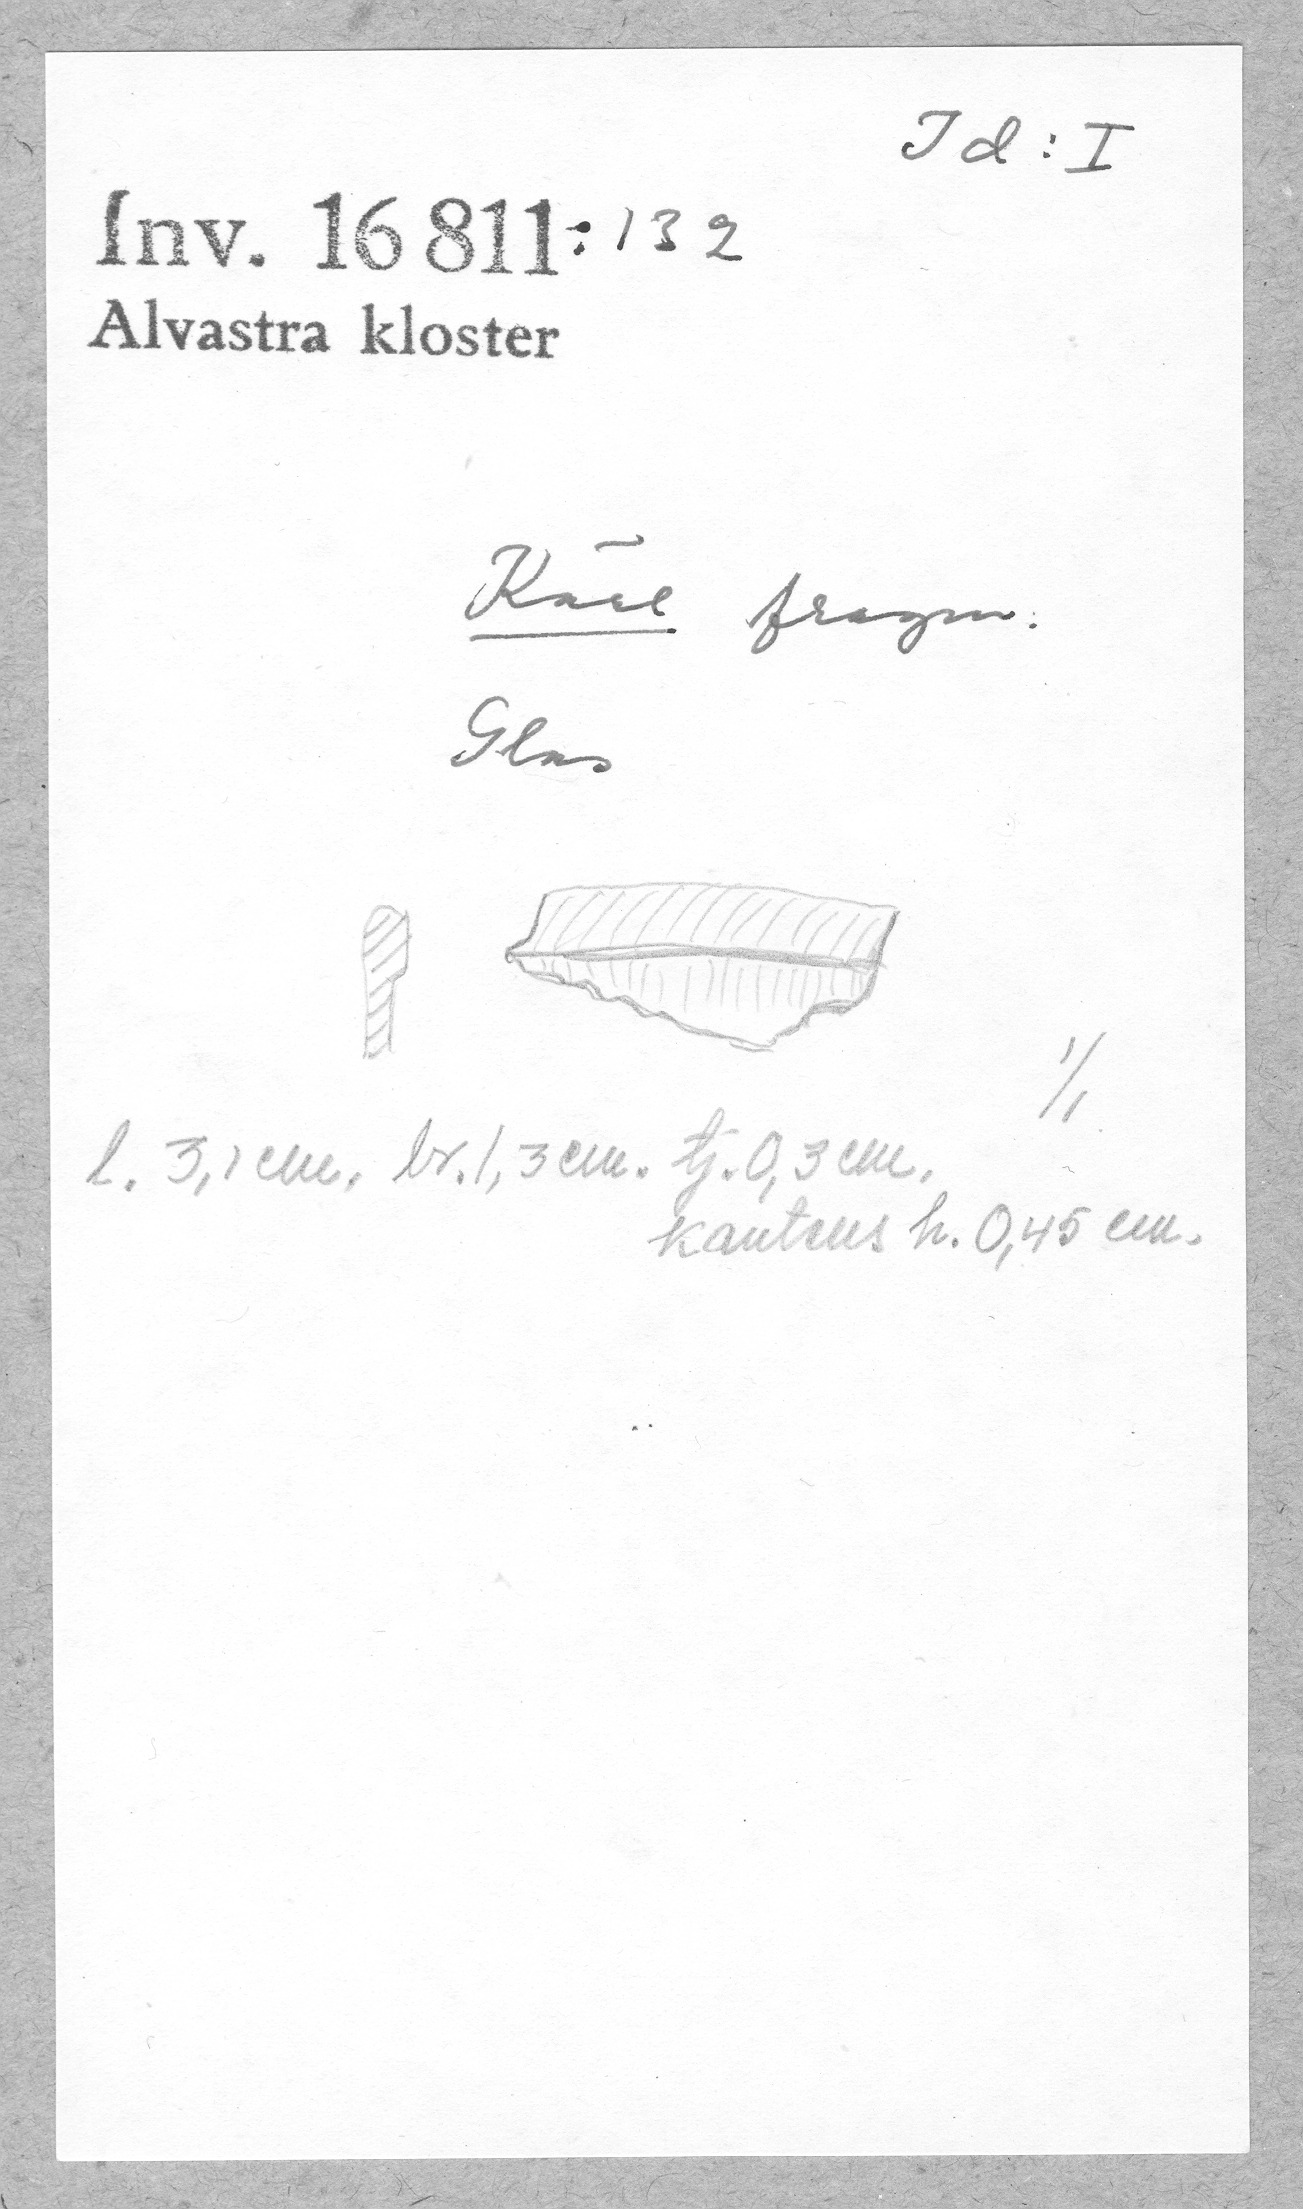 Id : I
Inv. 16 811 : 132
Alvastra kloster
Kärl fragm.
Glas
1/1
l. 3,1 cm. br. 1,3 cm. tj. 0,3 cm.
kantens h. 0,45 cm.